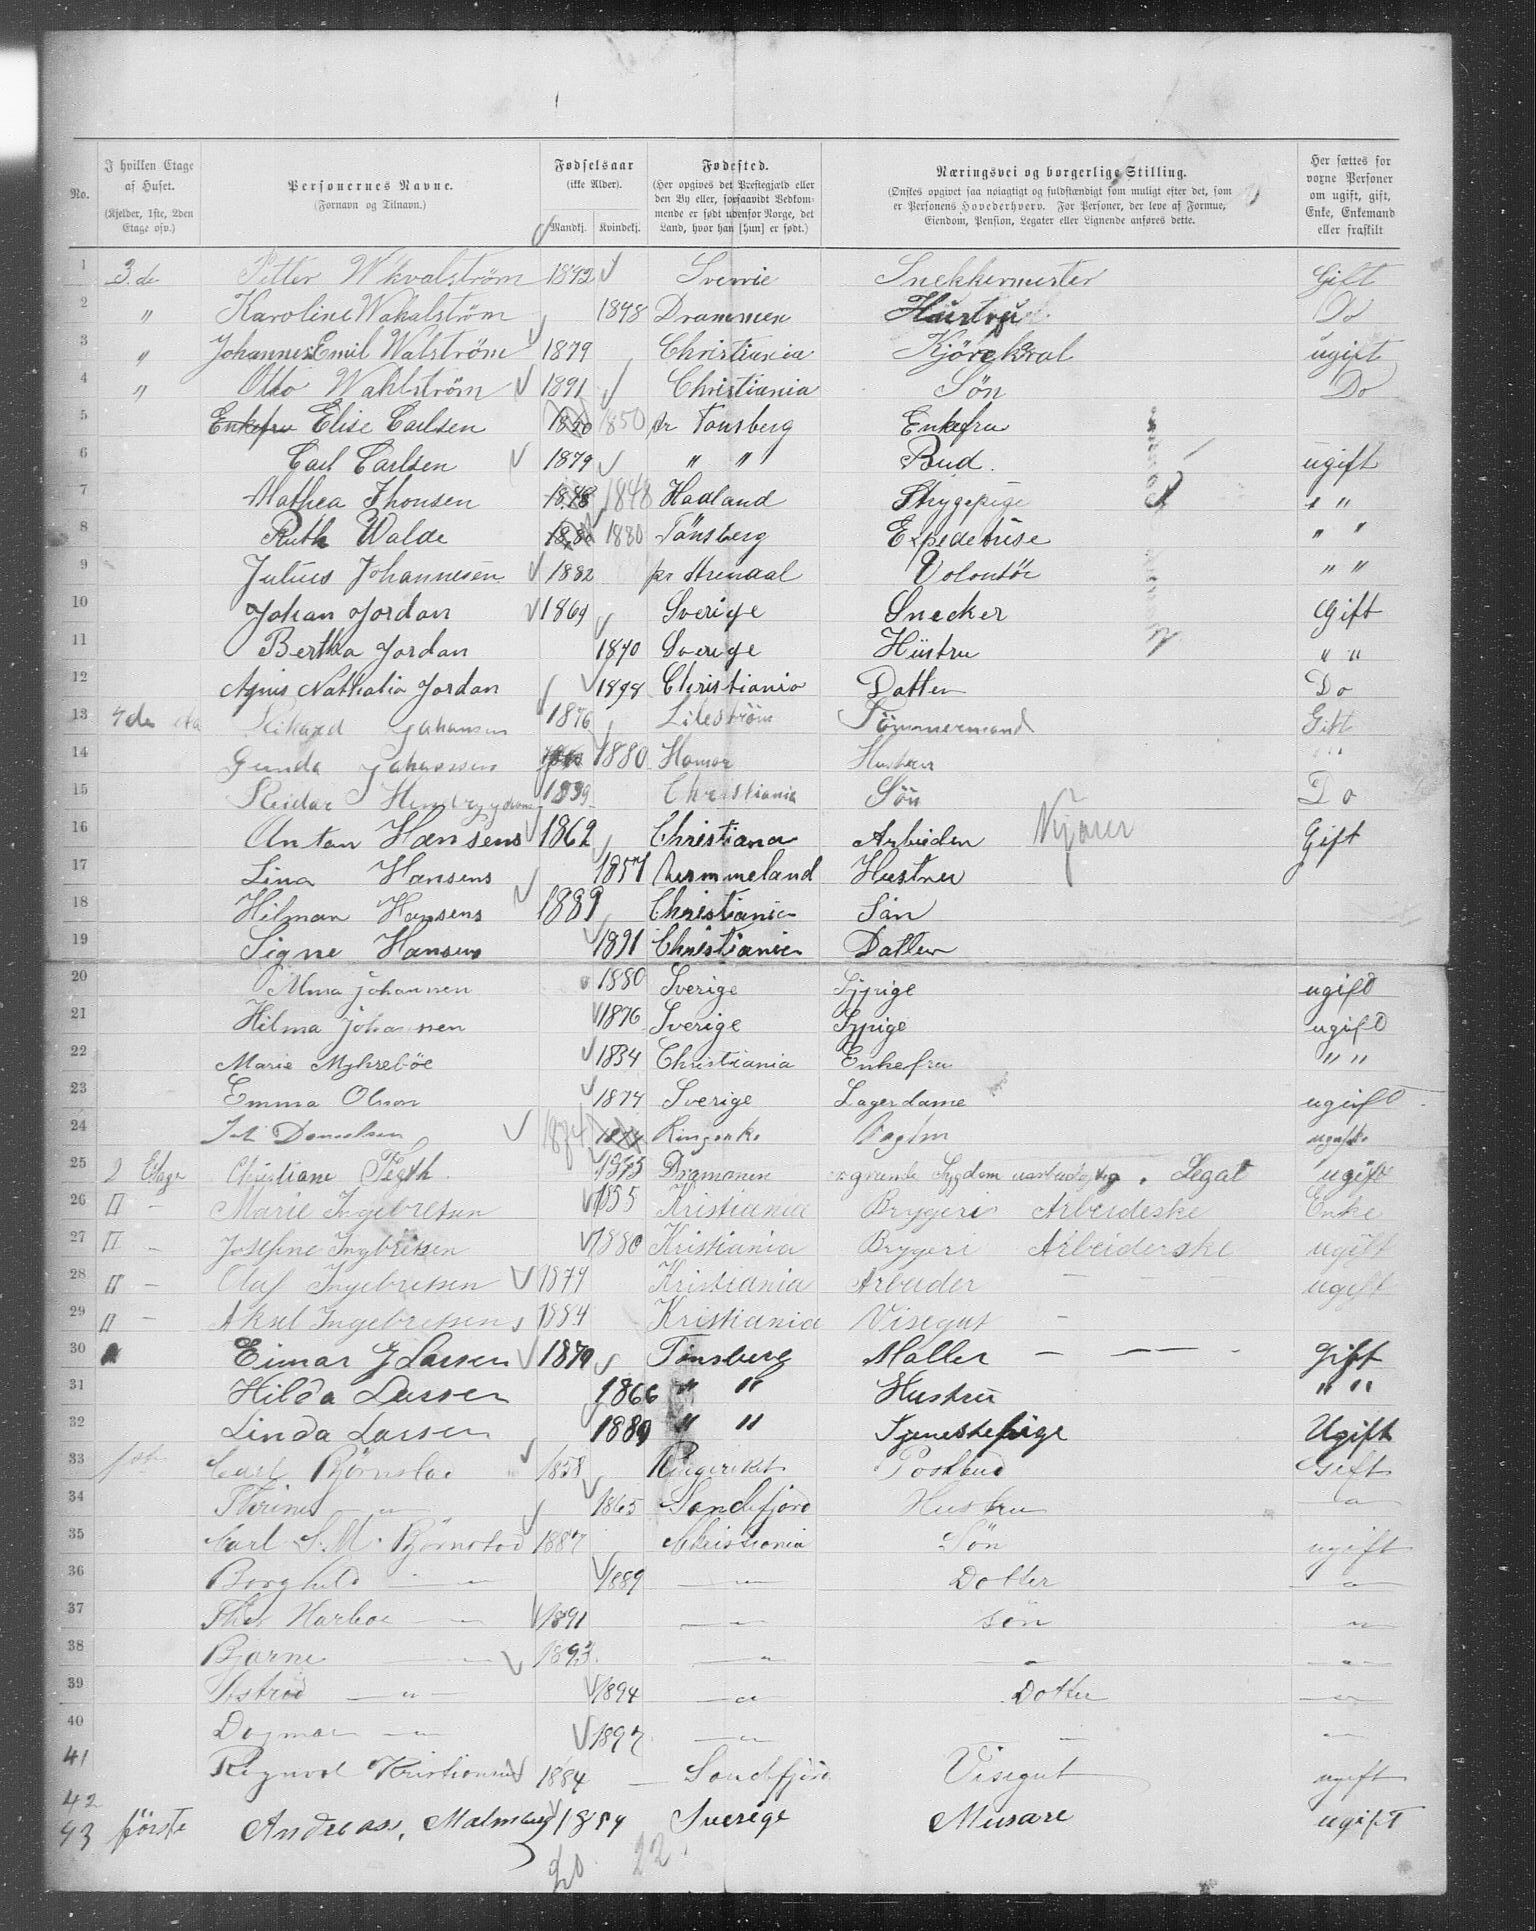 No.
I hvilken Etage af Huset. (Kjelder, 1ste, 2den Etage osv.)
Personernes Navne. (Fornavn og Tilnavn.)
Fødselsaar (ikke Alder). Mandkj. Kvindekj.
Fødested. (Her opgives det Præstegjæld eller den By eller, forsaavidt Vedkommende er født udenfor Norge, det Land, hvor han [hun] er født.)
Næringsvei og borgerlige Stilling. (Ønskes opgivet saa nøiagtigt og fuldstændigt som muligt efter det, som er Personens Hovederhverv. For Personer, der leve af Formue, Eiendom, Pension, Legater eller Lignende anføres dette.
Her sættes for voxne Personer om ugift, gift, Enke, Enkemand eller fraskilt
1 3. de Petter 1842 Sverrie Snekkermester Gift
2 " Karoline 1848 Drammen Hustru Do
3 " Johannes Emil Walström 1879 Christiania ugift
4 " Otto Wahlström 1891 Christiania Søn Do
5 Enkefru Elise Carlsen 1850 1850 pr Tønsberg Enkefru
6 Carl Carlsen 1879 " " Bud. ugift
7 Mathea Thonsen 1848 1848 Hadland " "
8 Ruth Walde 1880 1880 Tønsberg Expedetrise " "
9 Julius Johannesen 1882 pr Arendal Volontør " "
10 Johan Jordan 1869 Sverige Snecker Gift
11 Bertha Jordan 1870 Sverige Hüstru " "
12 Agnis Nathalia Jordan 1898 Christiania Datter Do
13 4de Rikard Johansen 1876 Lilestrøm Tømmermand Gift
14 Gunda Johansen 1880 Hamar Hustru " "
15 Reidar 1899 Christiania Søn Do
16 Anton Hansens 1862 Christiana Arbeider Gift
17 Lina Hansens 1857 Hustru
18 Hilman Hansens 1889 Christiania Sön
19 Signe Hansens 1891 Christiania Datter
20 Alma Johannen 1880 Sverige Sypige ugift
21 Hilma Johannen 1876 Sverige Sypige ugift
22 Marie Myhreböe 1834 Christiania Enkefru " "
23 Emma Olson 1874 Sverige Lagerdame ugift
24 1874 Ringerike ugift
25 2 Etage Christiane 1835 Drammen Legat ugift
26 II - Marie Ingebretsen 1855 Kristiania Bryggeri Arbeideske Enke
27 II - Josefine Ingbretsen 1880 Kristiania Brygeri Arbeiderske ugift
28 II - Olaf Ingebretsen 1879 Kristiania Arbeider ugift
29 II - Aksel Ingebretsen 1884 Kristiania Visegut
30 Einar J Larsen 1870 Tønsberg Maller gift
31 Hilda Larsen 1866 " " Hustru " "
32 Linda Larsen 1880 " " Tjenestepige Ugift
33 1ste Carl Bjørnstad 1858 Ringeriket Postbud Gift
34 Thrine — " — 1865 Sandefjord Hustru — " —
35 Carl S. M. Bjørnstad 1887 Christiania Søn ugift
36 Borghild — " — 1889 — " — Dotter — " —
37 Thor Harboe — " — 1891 — " — søn — " —
38 Bjarne — " — 1893 — " — — " — — " —
39 Astrid — " — 1894 — " — Dotter — " —
40 Dagmar — " — 1897 — " — — — " —
41 Ragnvol Kristiansen 1884 Sandefjord Visegut ugift
42
43 første Andreas, Malmberg 1854 Sverige Murare ugift
20 22.